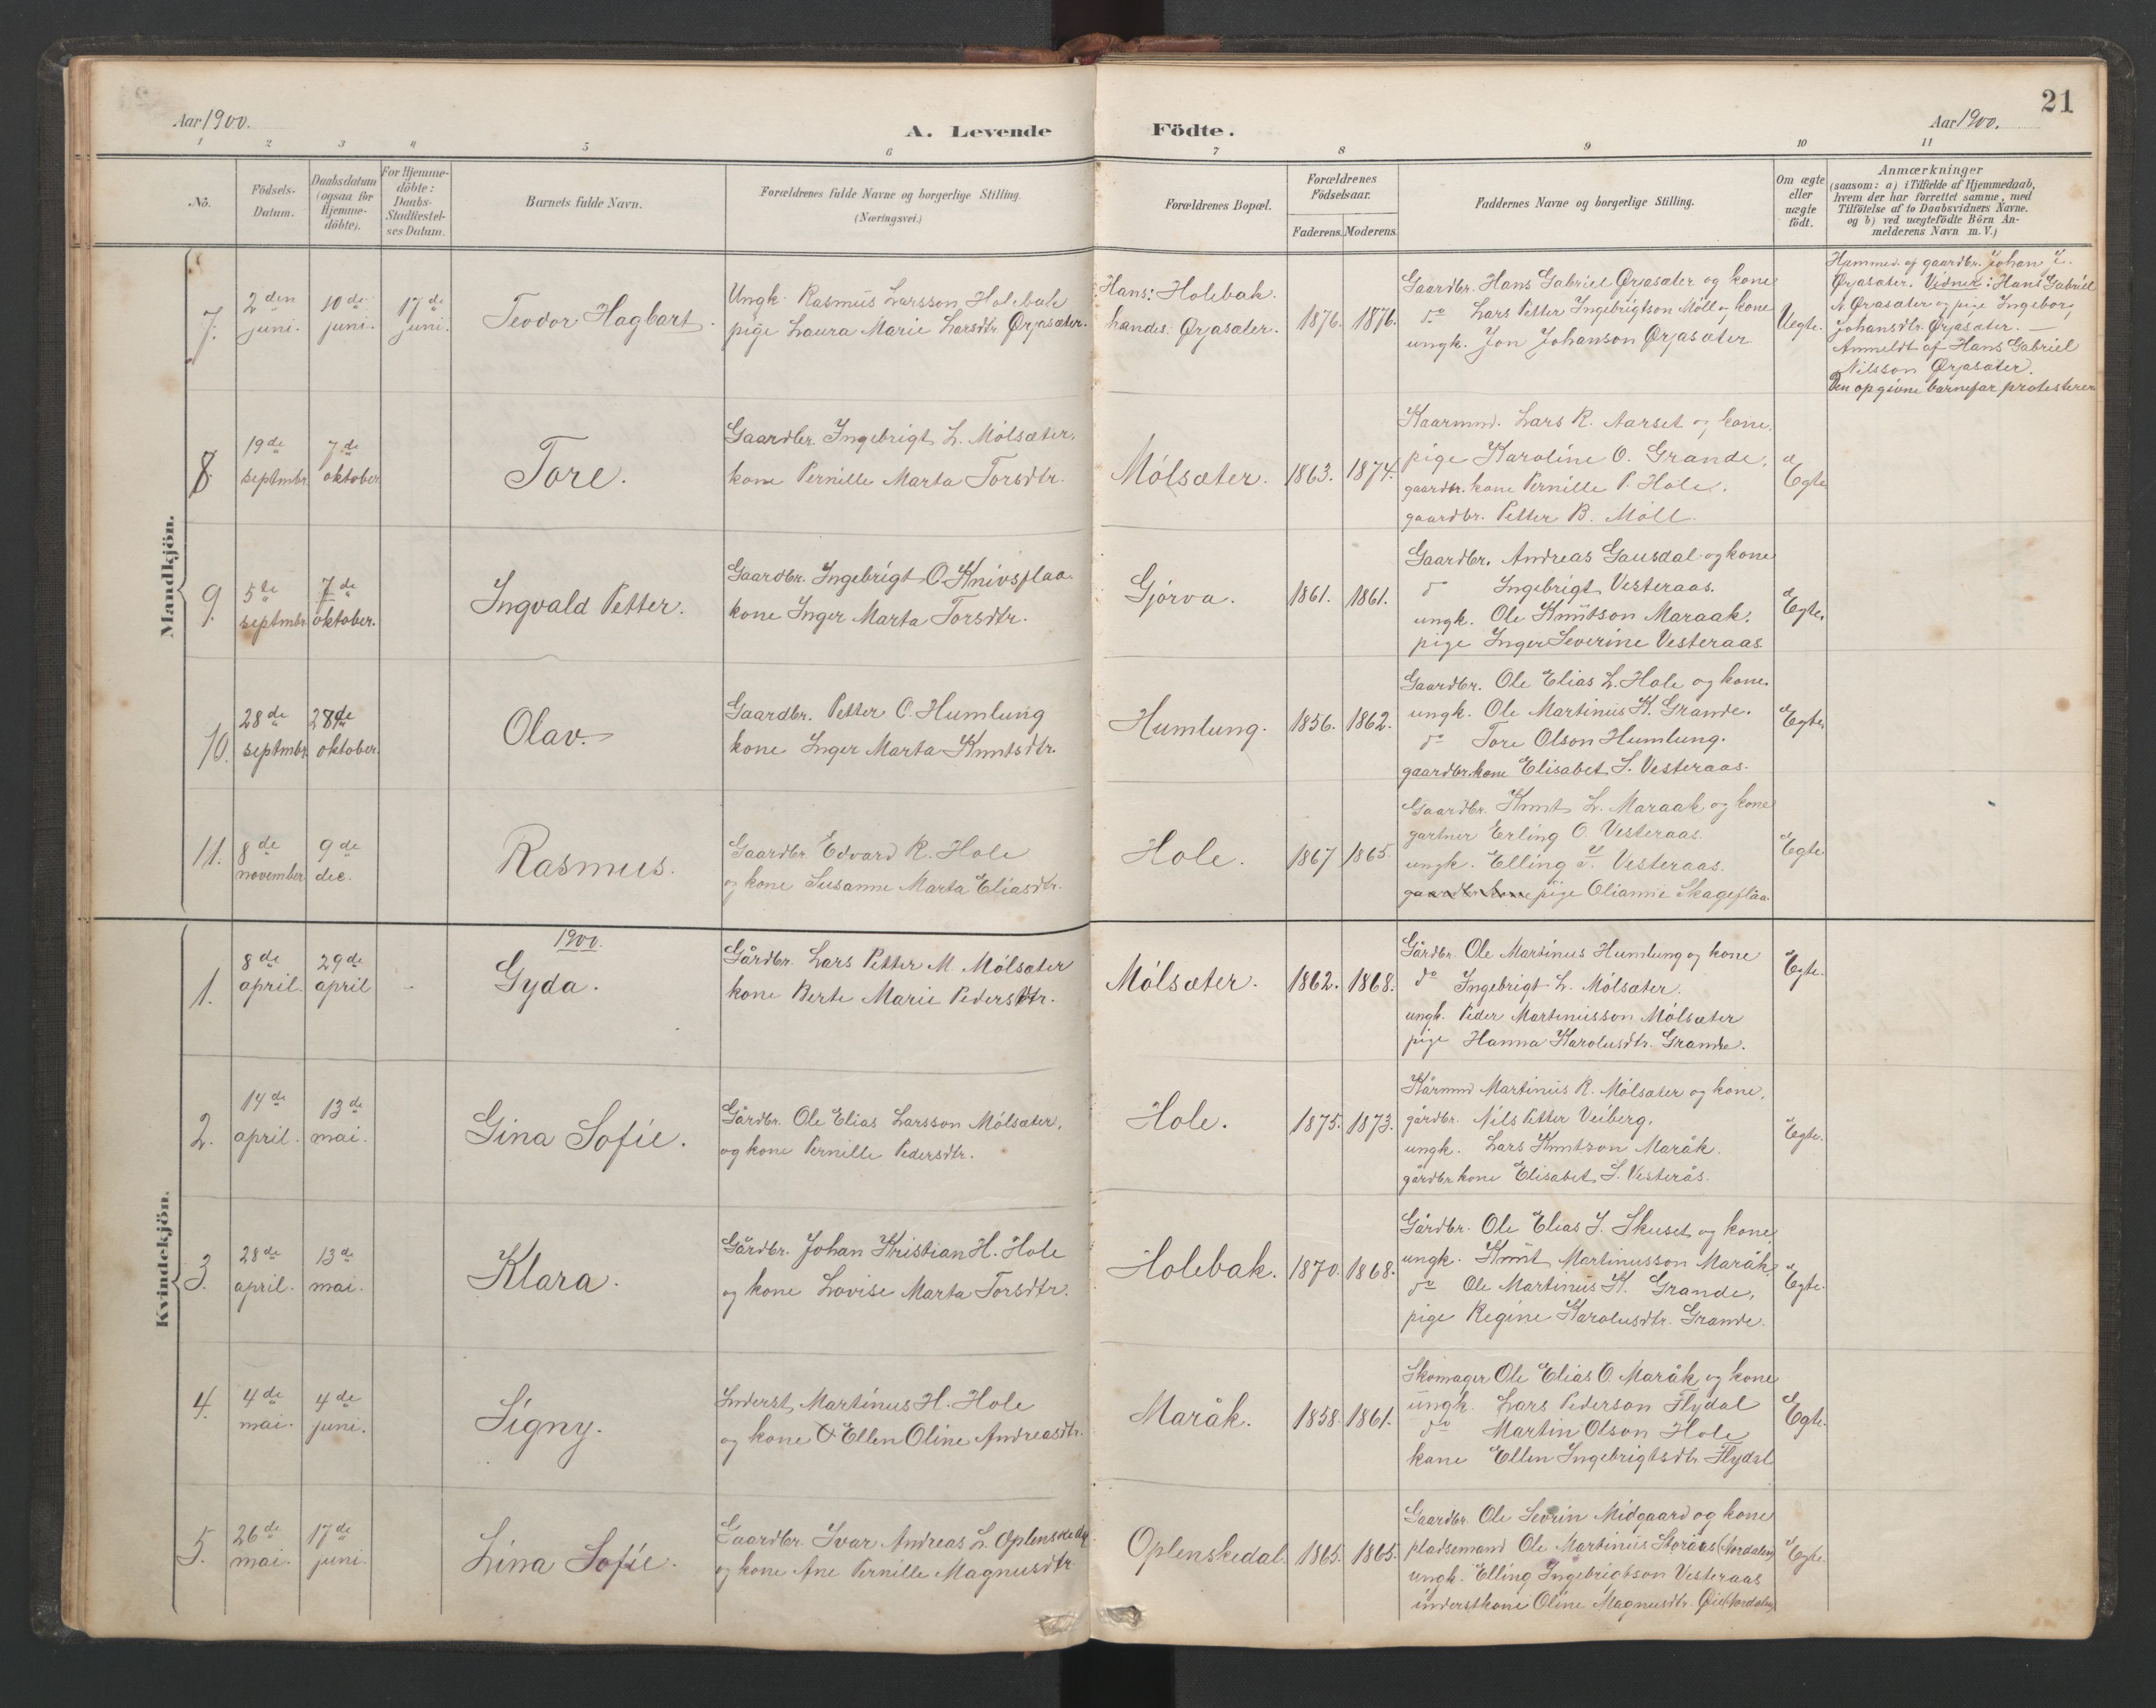 21
Aar 1900.
A. Levende Födte.
Aar 1900.
1 2 3 4 5 6 7 8 9 10 11
No.
Födsels-
Datum.
Daabsdatum
(ogsaa for
Hjemme-
döbte).
For Hjemme-
döbte:
Daabs-
Stadfæstel-
ses Datum.
Barnets fulde Navn.
Forældrenes fulde Navne og borgerlige Stilling.
(Næringsvei.)
Forældrenes Bopæl.
Forældrenes
Födselsaar.
Faderens. Moderens.
Faddernes Navne og borgerlige Stilling.
Om ægte
eller
uægte
födt.
Anmærkninger
(saasom: a) i Tilfælde af Hjemmedaab,
hvem der har forrettet samme, med
Tilföielse af to Daabsvidners Navne.
og b) ved uægtefödte Börn An-
melderens Navn m. V.)
Mandkjön.
7.
2den
juni.
10de
juni.
17de
juni.
Teodor Hagbart.
Ungk. Rasmus Larsson Holebak
pige Laura Marie Larsdtr. Ørjasæter.
Hans: Holebak.
handes: Ørjasæter.
1876. 1876.
Gaardbr. Hans Gabriel Ørjasæter og kone
do Lars Petter Ingebrigtson Möll og kone
ungk. Jon Johanson Ørjasæter
Uegte.
Hjemmed. af gaardbr. Johan L.
Ørjasæter. Vidner: Hans Gabriel
N. Ørjasæter og pige Ingebor,
Johansdtr. Ørjasæter. —
Anmeldt af Hans Gabriel
Nilsson Ørjasæter.
Den opgivne barnefar protesterer
8.
19de
septmbr
7de
oktober
Tore.
Gaardbr. Ingebrigt L. Mölsæter.
kone Pernille Marta Torsdtr.
Mölsæter.
1863. 1874.
Kaarmnd. Lars R. Aarset og kone,
pige Karoline O. Grande,
gaardbr. kone Pernille P. Hole.
gaardbr. Petter B. Möll.
Egte
9.
5te
septmbr
7de
oktober.
Ingvald Petter.
Gaardbr. Ingebrigt O. Knivsflaa.
kone Inger Marta Torsdtr.
Gjörva.
1861. 1861.
Gaardbr. Andreas Gausdal og kone
do Ingebrigt Vesteraas.
ungk. Ole Knutson Maraak.
pige Inger Severine Vesteraas.
Egte.
10.
28de
septmbr
28de
oktober.
Olav.
Gaardbr. Petter O. Humlung
kone Inger Marta Knutsdtr.
Humlung.
1856. 1862.
Gaardbr. Ole Elias L. Hole og kone.
ungk. Ole Martinus K. Grande.
do Tore Olson Humlung.
gaardbr. kone Elisabet S. Vesteraas.
Egte.
11.
8de
november
9de
dec.
Rasmus.
Gaardbr. Edvard R. Hole
og kone Susanne Marta Eliasdtr.
Hole.
1867 1865.
Gaardbr. Knut L. Maraak og kone
gartner Erling O. Vesteraas.
ungk. Elling J. Vesteraas.
gaardbr. kone pige Olianne Skageflaa.
Egte
Kvindekjön.
1900.
1.
8de
april.
29de
april
Gyda.
Gårdbr. Lars Petter M. Mölsæter
kone Berte Marie Pedersdtr.
Mölsæter.
1862. 1868.
Gårdbr. Ole Martinus Humlung og kone
do Ingebrigt L. Mölsæter.
ungk. Peder Martinusson Mölsæter
pige Hanna Karolusdtr. Grande.
Egte.
2.
14de
april.
13de
mai.
Gina Sofie.
Gårdbr. Ole Elias Larsson Mölsæter,
og kone Pernille Pedersdtr.
Hole.
1875. 1873.
Kårmnd Martinus R. Mölsæter og kone,
gårdbr. Nils Petter Veiberg,
ungk. Lars Knutson Maråk.
gårdbr kone Elisabet S. Vesterås.
Egte.
3.
28de
april.
13de
mai.
Klara.
Gårdbr. Johan Kristian H. Hole
og kone Lovise Marta Torsdtr.
Holebak.
1870. 1868.
Gårdbr. Ole Elias J. Skuset og kone
ungk. Knut Martinusson Maråk,
do Ole Martinus K. Grande,
pige Regine Karolusdtr. Grande.
Egte.
4.
4de
mai.
4de
juni.
Signy.
Inderst Martinus H. Hole
og kone Ellen Oline Andreasdtr.
Maråk.
1858. 1861.
Skomager Ole Elias O. Maråk og kone
ungk. Lars Pederson Flydal
do Martin Olson Hole
kone Ellen Ingebrigtsdtr Flydal
Egte.
5.
26de
mai.
17de
juni.
Lina Sofie.
Gaardbr. Ivar Andreas L. Oplenskedal
og kone Ane Pernille Magnusdtr
Oplenskedal
1865. 1865.
Gaardbr. Ole Sevrin Midgaard og kone
pladsemand Ole Martinus Storaas (Nordalen)
ungk. Elling Ingebrigtson Vesteraas
inderstkone Oline Magnusdtr. Øie (Nordalen)
Egte.